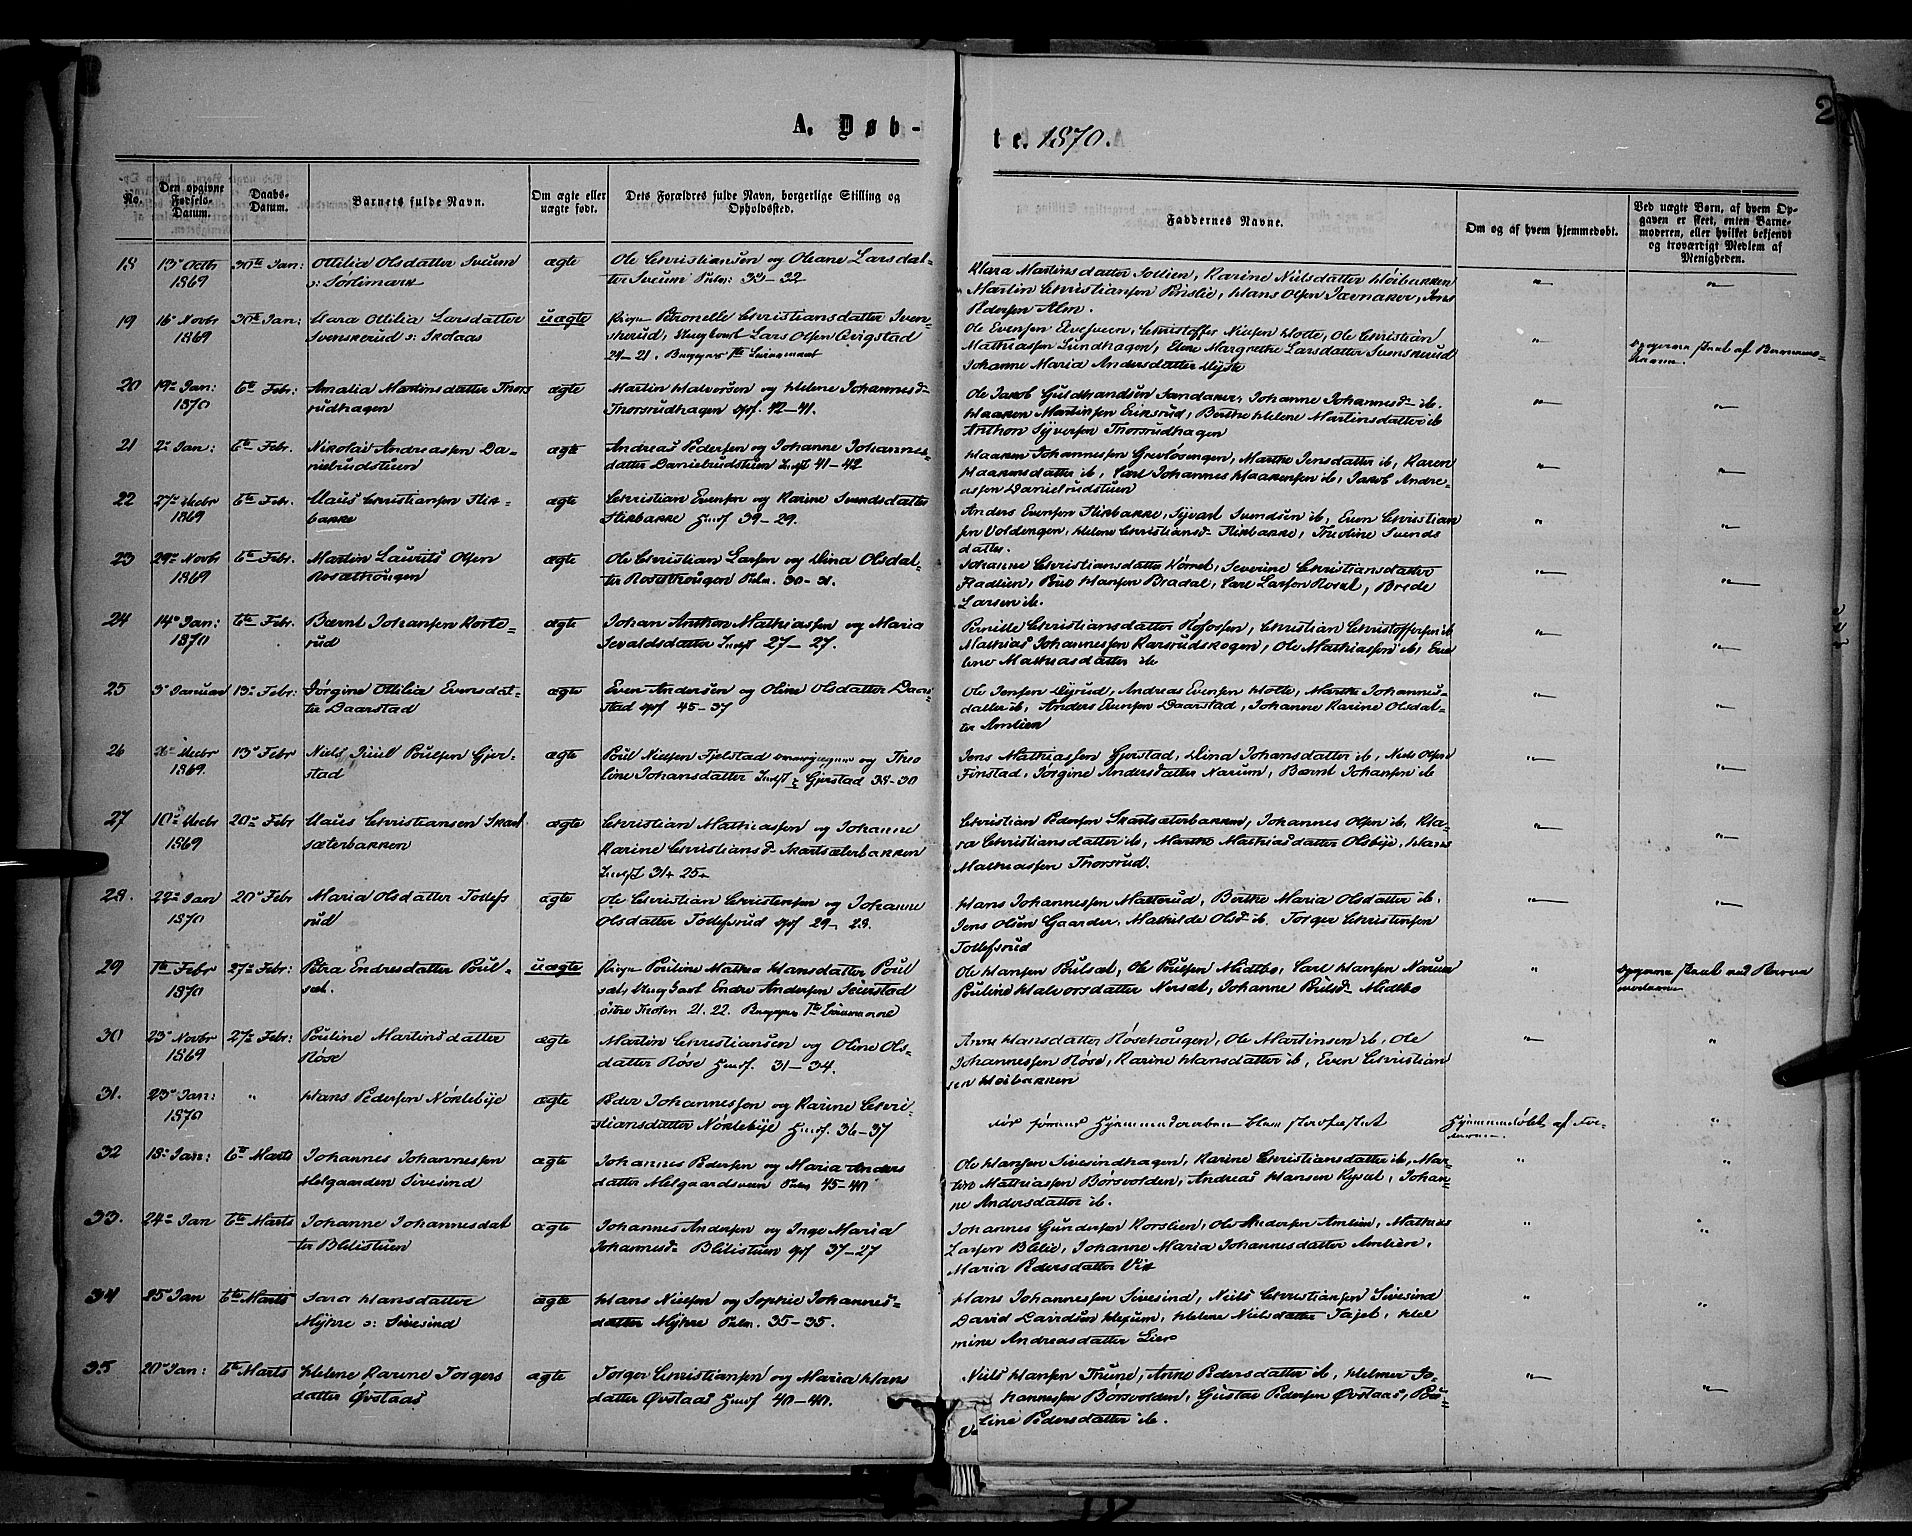 2
A. Døb-
te. 1870.
No.
Den opgivne Fødsels-Datum.
Daabs-Datum.
Barnets fulde Navn.
Om ægte eller uægte født.
Dets Forældres fulde Navn, borgerlige Stilling og Opholdssted.
Faddernes Navne.
Om og af hvem hjemmedøbt.
Ved uægte Børn, af hvem Opgaven er skeet, enten Barnemoderen, eller hvilket bekjendt og troværdigt Medlem af Menigheden.
18 13 Octb 30te Jan: Ottilia Olsdatter Sveum ægte Ole Christiansen og Oleane Larsdat-
1869 o: Sørlimark ter Sveum 33-32
Klara Martinsdatter Karine Nielsdatter Høibakken
Martin Christiansen Hans Olsen Jævnaker, Jens
Pedersen Alm.
19 16 Novbr 30te Jan: Clara Ottilia Larsdatter uægte Pigen Petronelle Christiansdatter Sven-
1869 Svenskerud o: Skolaas skerud, Ungkarl Lars Olsen
24-21. Begges 1te Leiermaal
Ole Evensen Elvesveen, Christoffer Nielsen Holte, Ole Christian
Mathiassen Lundhagen, Eline Margrethe Larsdatter Svenskerud
Johanne Maria Andersdatter
20 19 Jan: 6te Febr: Amalia Martinsdatter Thors ægte Martin Halvorsen og Helene Johannesd-
1870 rudhagen Thorsrudhagen 42-41.
Ole Jakob Gulbrandsen Sandaker, Johanne Johannesd- ib.
Haaken Martinsen Eriksrud, Berthe Helene Martinsdatter ib
Anthon Syversen Thorsrudhagen
21 2 Jan: 6te Febr. Nikolai Andreassen Da- ægte Andreas Pedersen og Johanne Johannes-
nielrudstuen datter Danielrudstuen Indst 41-42
Haaken Johannesen Marthe Jensdatter ib, Karen
Haakensdatter ib, Carl Johannes Haakensen ib, Jakob Andre-
assen Danielrudstuen
22 27 Decbr 6te Febr. Claus Christiansen Slik- ægte Christian Evensen og Karine Svendsdatter
1869 bakke Slikbakke Huusf 39-29.
Anders Evensen Slikbakke, Syvart Svendsen ib, Even Christian
sen Voldengen, Helene Christiansd- Slikbakke, Tholine Svends
datter.
23 29 Novbr 6te Febr. Martin Laurits Olsen ægte Ole Christian Larsen og Dina Olsdat-
1869 ter 30-31.
Johanne Christiansdatter Severine Christiansdatter
Hansen Bradal, Carl Larsen Brede
Larsen ib.
24 14 Jan: 6te Febr. Bernt Johansen Korte- ægte Johan Anthon Mathiassen og Maria
1870 rud Sevaldsdatter Indst 27-27.
Pernille Christiansdatter Christian Christoffersen ib
Mathias Johannesen Karsrudskogen, Ole Mathiassen ib, Eve
line Mathiasdatter ib
25 3 Januar 13 Febr: Jørgine Ottilia Evensdat- ægte Even Andersen og Oline Olsdatter Daar-
ter Daarstad stad 45-37
Ole Jensen Dyrud, Andreas Evensen Holte, Marthe Johannes-
datter ib, Anders Evensen Daarstad, Johanne Karine Olsdat-
ter Amlien
26 Decbr 13 Febr Niels Juul Poulsen Gjer- ægte Poul Nielsen Fjelstad og Tho
1869. stad line Johansdatter Indst Gjerstad 38-30
Jens Mathiassen Gjerstad, Dina Johansdatter ib, Niels Olsen
Finstad, Jørgine Andersdatter Narum, Bernt Johansen ib
27 10 Decbr 20 Febr Claus Christiansen Skart ægte Christian Mathiassen og Johanne
1869 sæterbakken Karine Christiansd- Skartsæterbakken
Indst 31+25+
Christian Pedersen Skartsæterbakken, Johannes Olsen ib, Kla-
ra Christiansdatter ib, Marthe Mathiasdatter Olsbye, Hans
Mathiassen Thorsrud.
28. 22 Jan 20 Febr Maria Olsdatter Tollefs ægte Ole Christian Christensen og Johanne
1870 rud Olsdatter Tollefsrud 29-23.
Hans Johannesen Matterud, Berthe Maria Olsdatter ib.
Jens Olsen Gaarder, Mathilde Olsd- ib. Torger Christensen
Tollefsrud
29 1te Febr 27 Febr: Petra Endresdatter Poul- uægte Pigen Pouline Mathea Hansdatter Poul
1870 sæt. sæt, Ungkarl Endre Andersen Seierstad
østre Thoten 21. 22. Begges 1te Leiermaal
Ole Hansen Poulsæt, Ole Poulsen Midtbø, Carl Hansen Narum
Pouline Halvorsdatter Nersæt, Johanne Poulsd- Midtbø
30 23 Novbr 27 Febr: Pouline Martinsdatter ægte Martin Christiansen og Oline Ols-
1869 Røse datter Røse Huusf. 31-34.
Anne Hansdatter Røsehougen, Ole Martinsen ib, Ole
Johannesen Røse, Karine Hansdatter ib, Even Christian
sen Høibakken
31. 23 Jan: " Hans Pedersen Nøklebye ægte Peder Johannessen og Karine Chri-
1870 stiansdatter Nøklebye Huusf. 36-37
Hjemmedaaben blev stadfæstet
Hjemmedøbt af
32 18 Jan: 6te Marts Johannes Johannessen ægte Johannes Pedersen og Maria Anders
Melgaarden Sivesind datter Melgaardsveen 45-40
Ole Hansen Sivesindhagen, Karine Christiansdatter ib, Mar-
Mathiassen Børsvolden, Andreas Hansen Johan-
ne Andersdatter ib.
33. 24 Jan 6te Marts Johanne Johannesdat ægte Johannes Andersen og Inge Maria
ter Blilistuen Johannesd- Blilistuen 37-27
Johannes Gundersen Korslien, Ole Andersen Amlien, Mathias
Larsen Blilie, Johanne Maria Johannesdatter Amlien,
Maria Pedersdatter
34 25 Jan 6te Marts Sara Hansdatter ægte Hans Nielsen og Sophie Johannes-
Myhre o: Sivesind datter Myhre 35-35.
Hans Johannessen Sivesind, Niels Christiansen Sivesind
David Hexum, Helene Nielsdatter Hel
mine Andreasdatter Lier
35 20 Jan: 6te Marts Helene Karine Torgers ægte Torger Christiansen og Maria Hans
datter Øvstaas datter Øvstaas Huusf 40-40.
Niels Hansen Thune, Anne Pedersdatter ib, Helmer Jo-
hannessen Børsvolden, Gustav Pedersen Øvstaas, Pou-
line Pedersdatter ib.